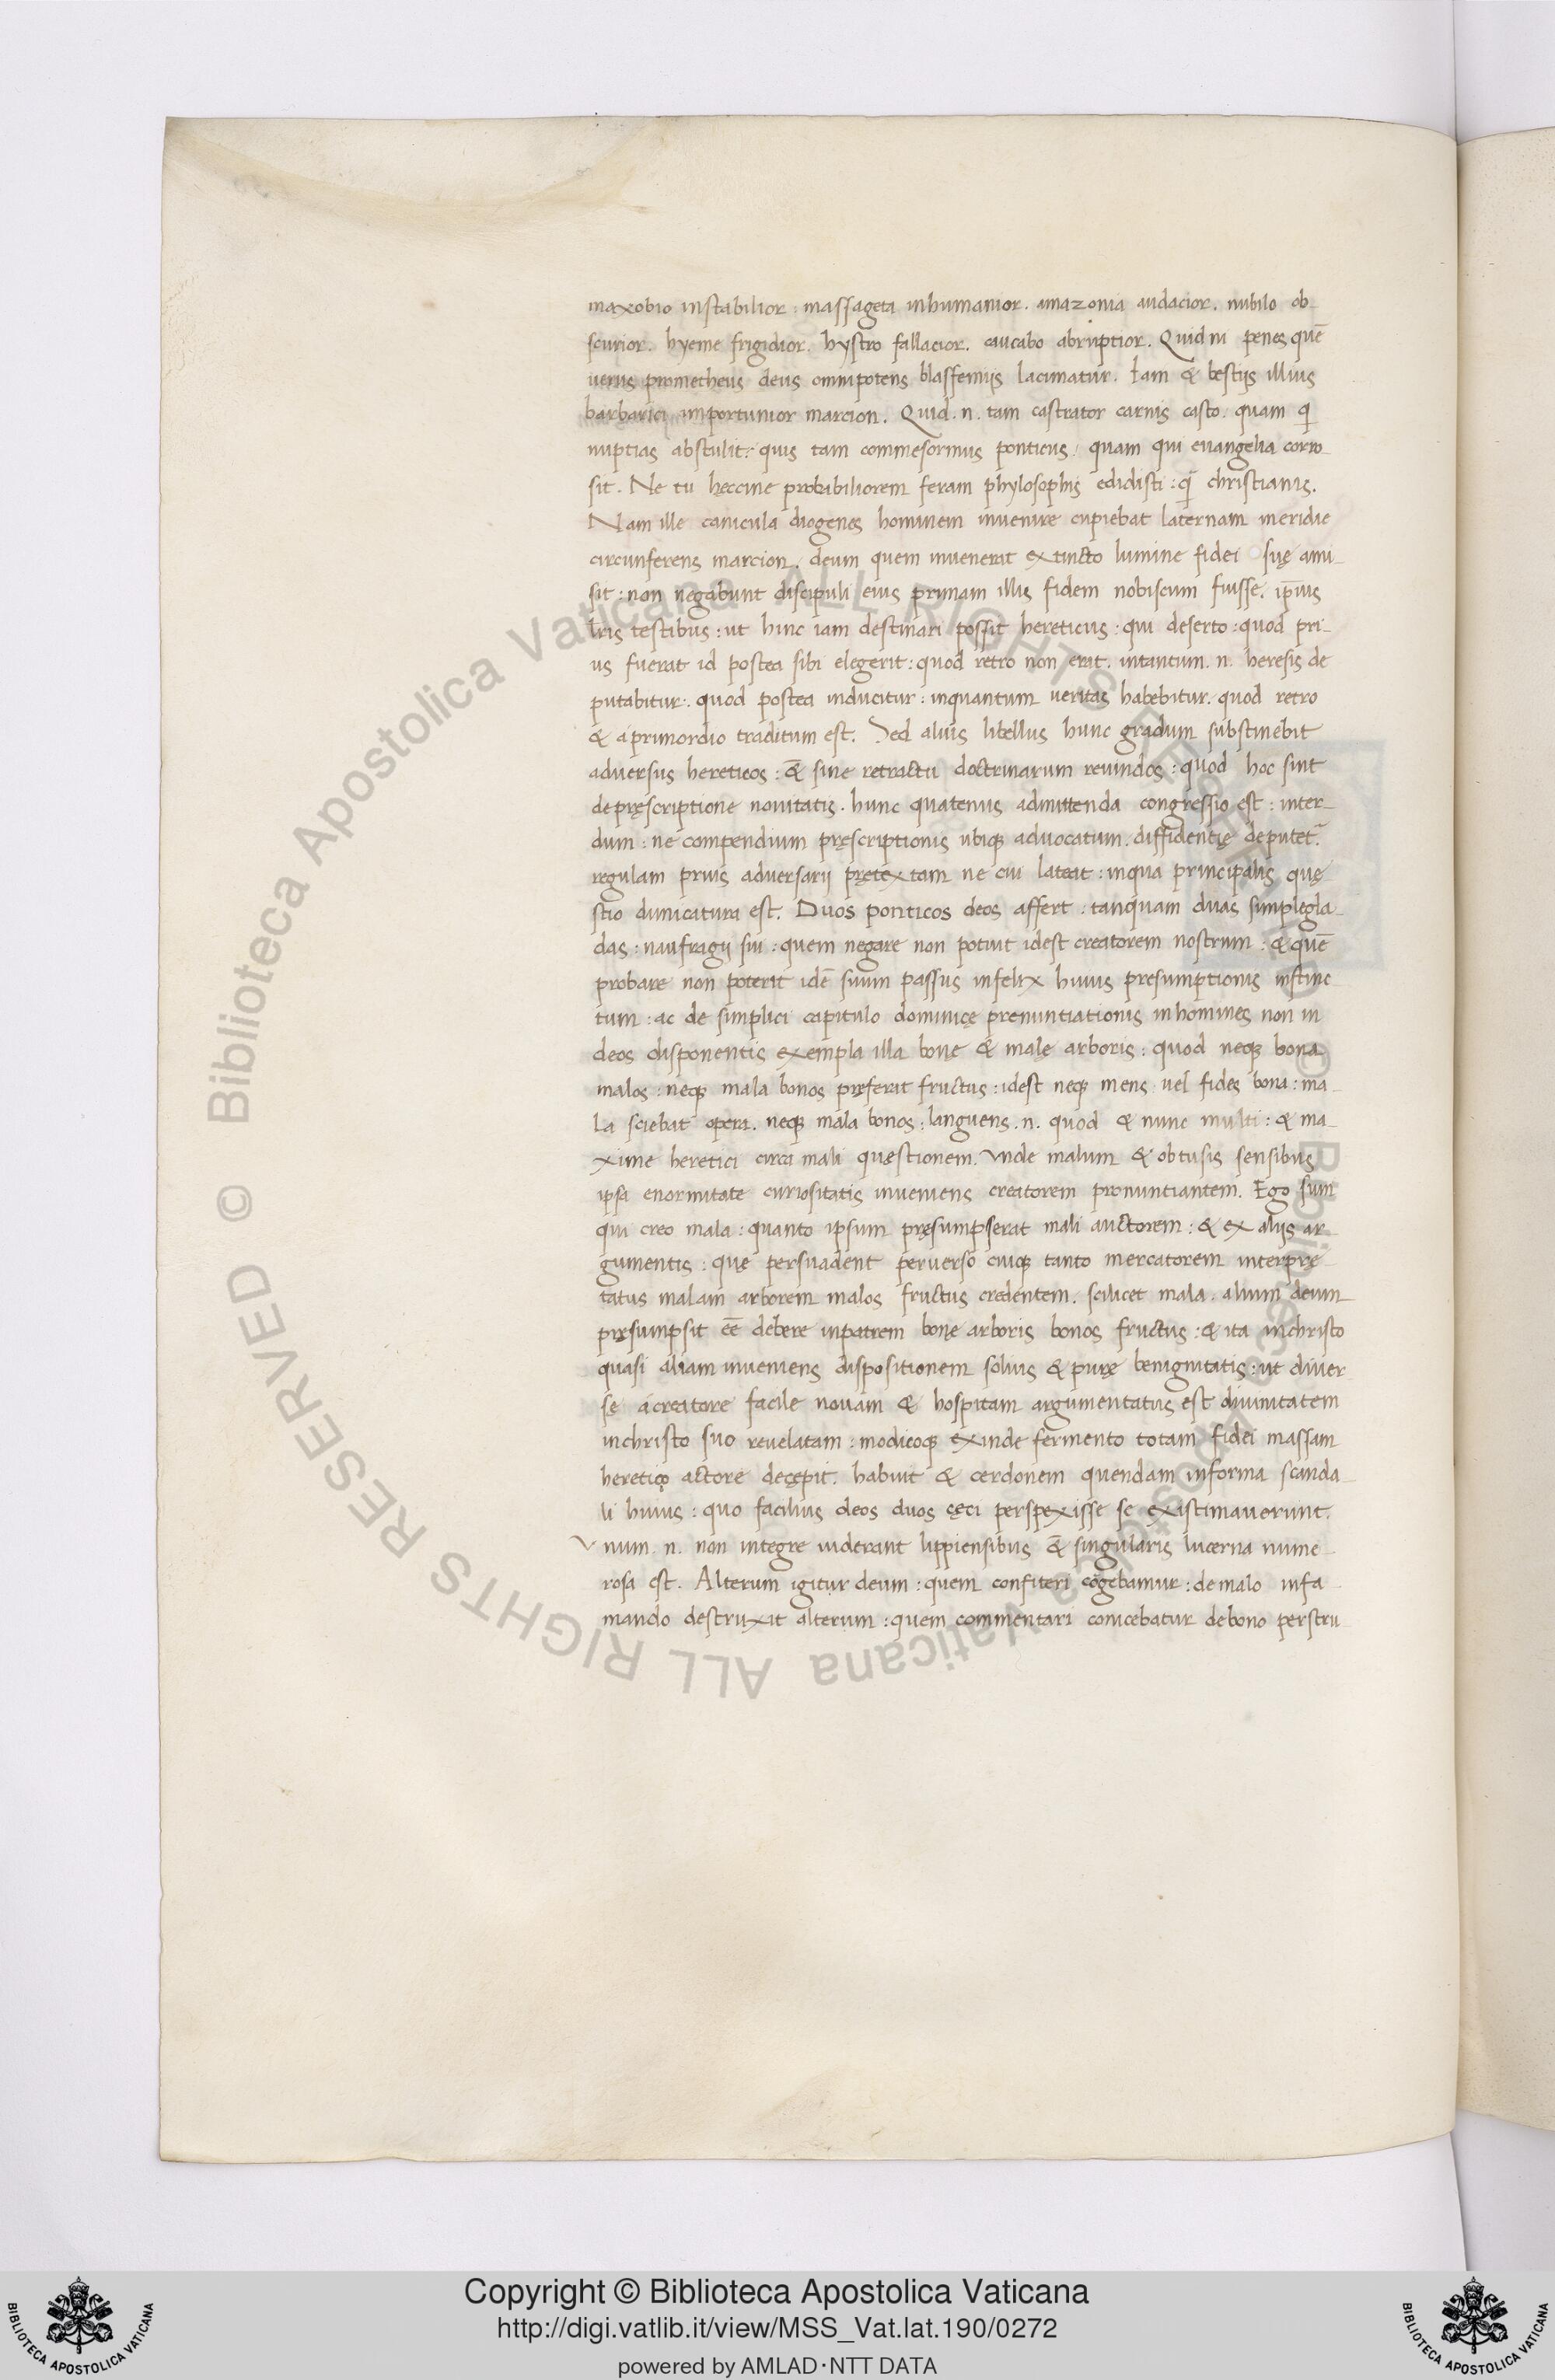 maxobio instabilior : massageta inhumanior . amazonia audacior . nubilo ob-
scurior . hyeme frigidior . hystro fallacior . caucabo abruptior . Quid ni penes quē
uerus prometheus deus omnipotens blassfemijs lacinatur . Iam & bestijs illius
barbarici importunior marcion . Quid .n. tam castrator carnis casto . quam q̄
nuptias abstulit : quis tam commesorinus ponticus . quam qui euangelia corro-
sit . Ne tu hęccine probabiliorem feram phylosophis edidisti : q̄ christianis .
Nam ille canicula diogenes hominem inuenire cupiebat laternam meridie
circunferens marcion . deum quem inuenerat extincto lumine fidei suę ami-
sit : non negabunt discipuli eius primam illis fidem nobiscum fuisse . ip̄ius
lr̄is testibus : ut hinc iam destinari possit hereticus : qui deserto : quod pri-
us fuerat id postea sibi elegerit : quod retro non erat . intantum .n. heresis de
putabitur . quod postea inducitur : inquantum ueritas habebitur . quod retro
& aprimordio traditum est . Sed alius libellus hunc gradum substinebit
aduersus hereticos : & sine retractu doctrinarum reuindos : quod hoc sint
depręscriptione nouitatis . hunc quatenus admittenda congressio est : inter-
dum : ne compendium pręscriptionis ubiq; aduocatum . diffidentię deputet̄
regulam prius aduersarij prętextam ne cui lateat : inqua principalis quę
stio dimicatura est . Duos ponticos deos affert : tanquam duas simplegla-
das : naufragij sui : quem negare non potuit idest creatorem nostrum : & quē
probare non poterit idē suum passus infelix huius presumptionis instinc
tum : ac de simplici capitulo dominicę prenuntiationis inhomines non in
deos disponentis exempla illa bone & malę arboris : quod neq; bona
malos : neq; mala bonos pręferat fructus : idest neq; mens uel fides bona : ma
la sciebat opera . neq; mala bonos : languens .n. quod & nunc multi : & ma-
xime heretici circa mali quęstionem . Vnde malum & obtusis sensibus
ipsa enormitate curiositatis inueniens creatorem pronuntiantem . Ego sum
qui creo mala : quanto ipsum pręsumpserat mali auctorem : & ex alijs ar-
gumentis : quę persuadent peruerso cuiq; tanto mercatorem interprę-
tatus malam arborem malos fructus credentem . scilicet mala . alium deum
pręsumpsit eē debere inpatrem bonę arboris bonos fructus : & ita inchristo
quasi aliam inueniens dispositionem solius & purę benignitatis : ut diuer
sę acreatore facile nouam & hospitam argumentatus est diuinitatem
inchristo suo reuelatam : modicoq; exinde fermento totam fidei massam
heretico actore decępit . habuit & cerdonem quendam informa scanda-
li huius : quo facilius deos duos cęci perspexisse se existimauerunt .
Vnum .n. non integre uiderant lippiensibus & singularis lucerna nume-
rosa est . Alterum igitur deum : quem confiteri cogebamur : demalo infa-
mando destruxit alterum : quem commentari conicebatur debono perstru-
© Biblioteca Apostolica Vaticana ALL RIGHTS RESERVED
© Biblioteca Apostolica Vaticana ALL RIGHTS RESERVED
Copyright © Biblioteca Apostolica Vaticana
http://digi.vatlib.it/view/MSS_Vat.lat.190/0272
powered by AMLAD·NTT DATA
BIBLIOTECA APOSTOLICA VATICANA
BIBLIOTECA APOSTOLICA VATICANA